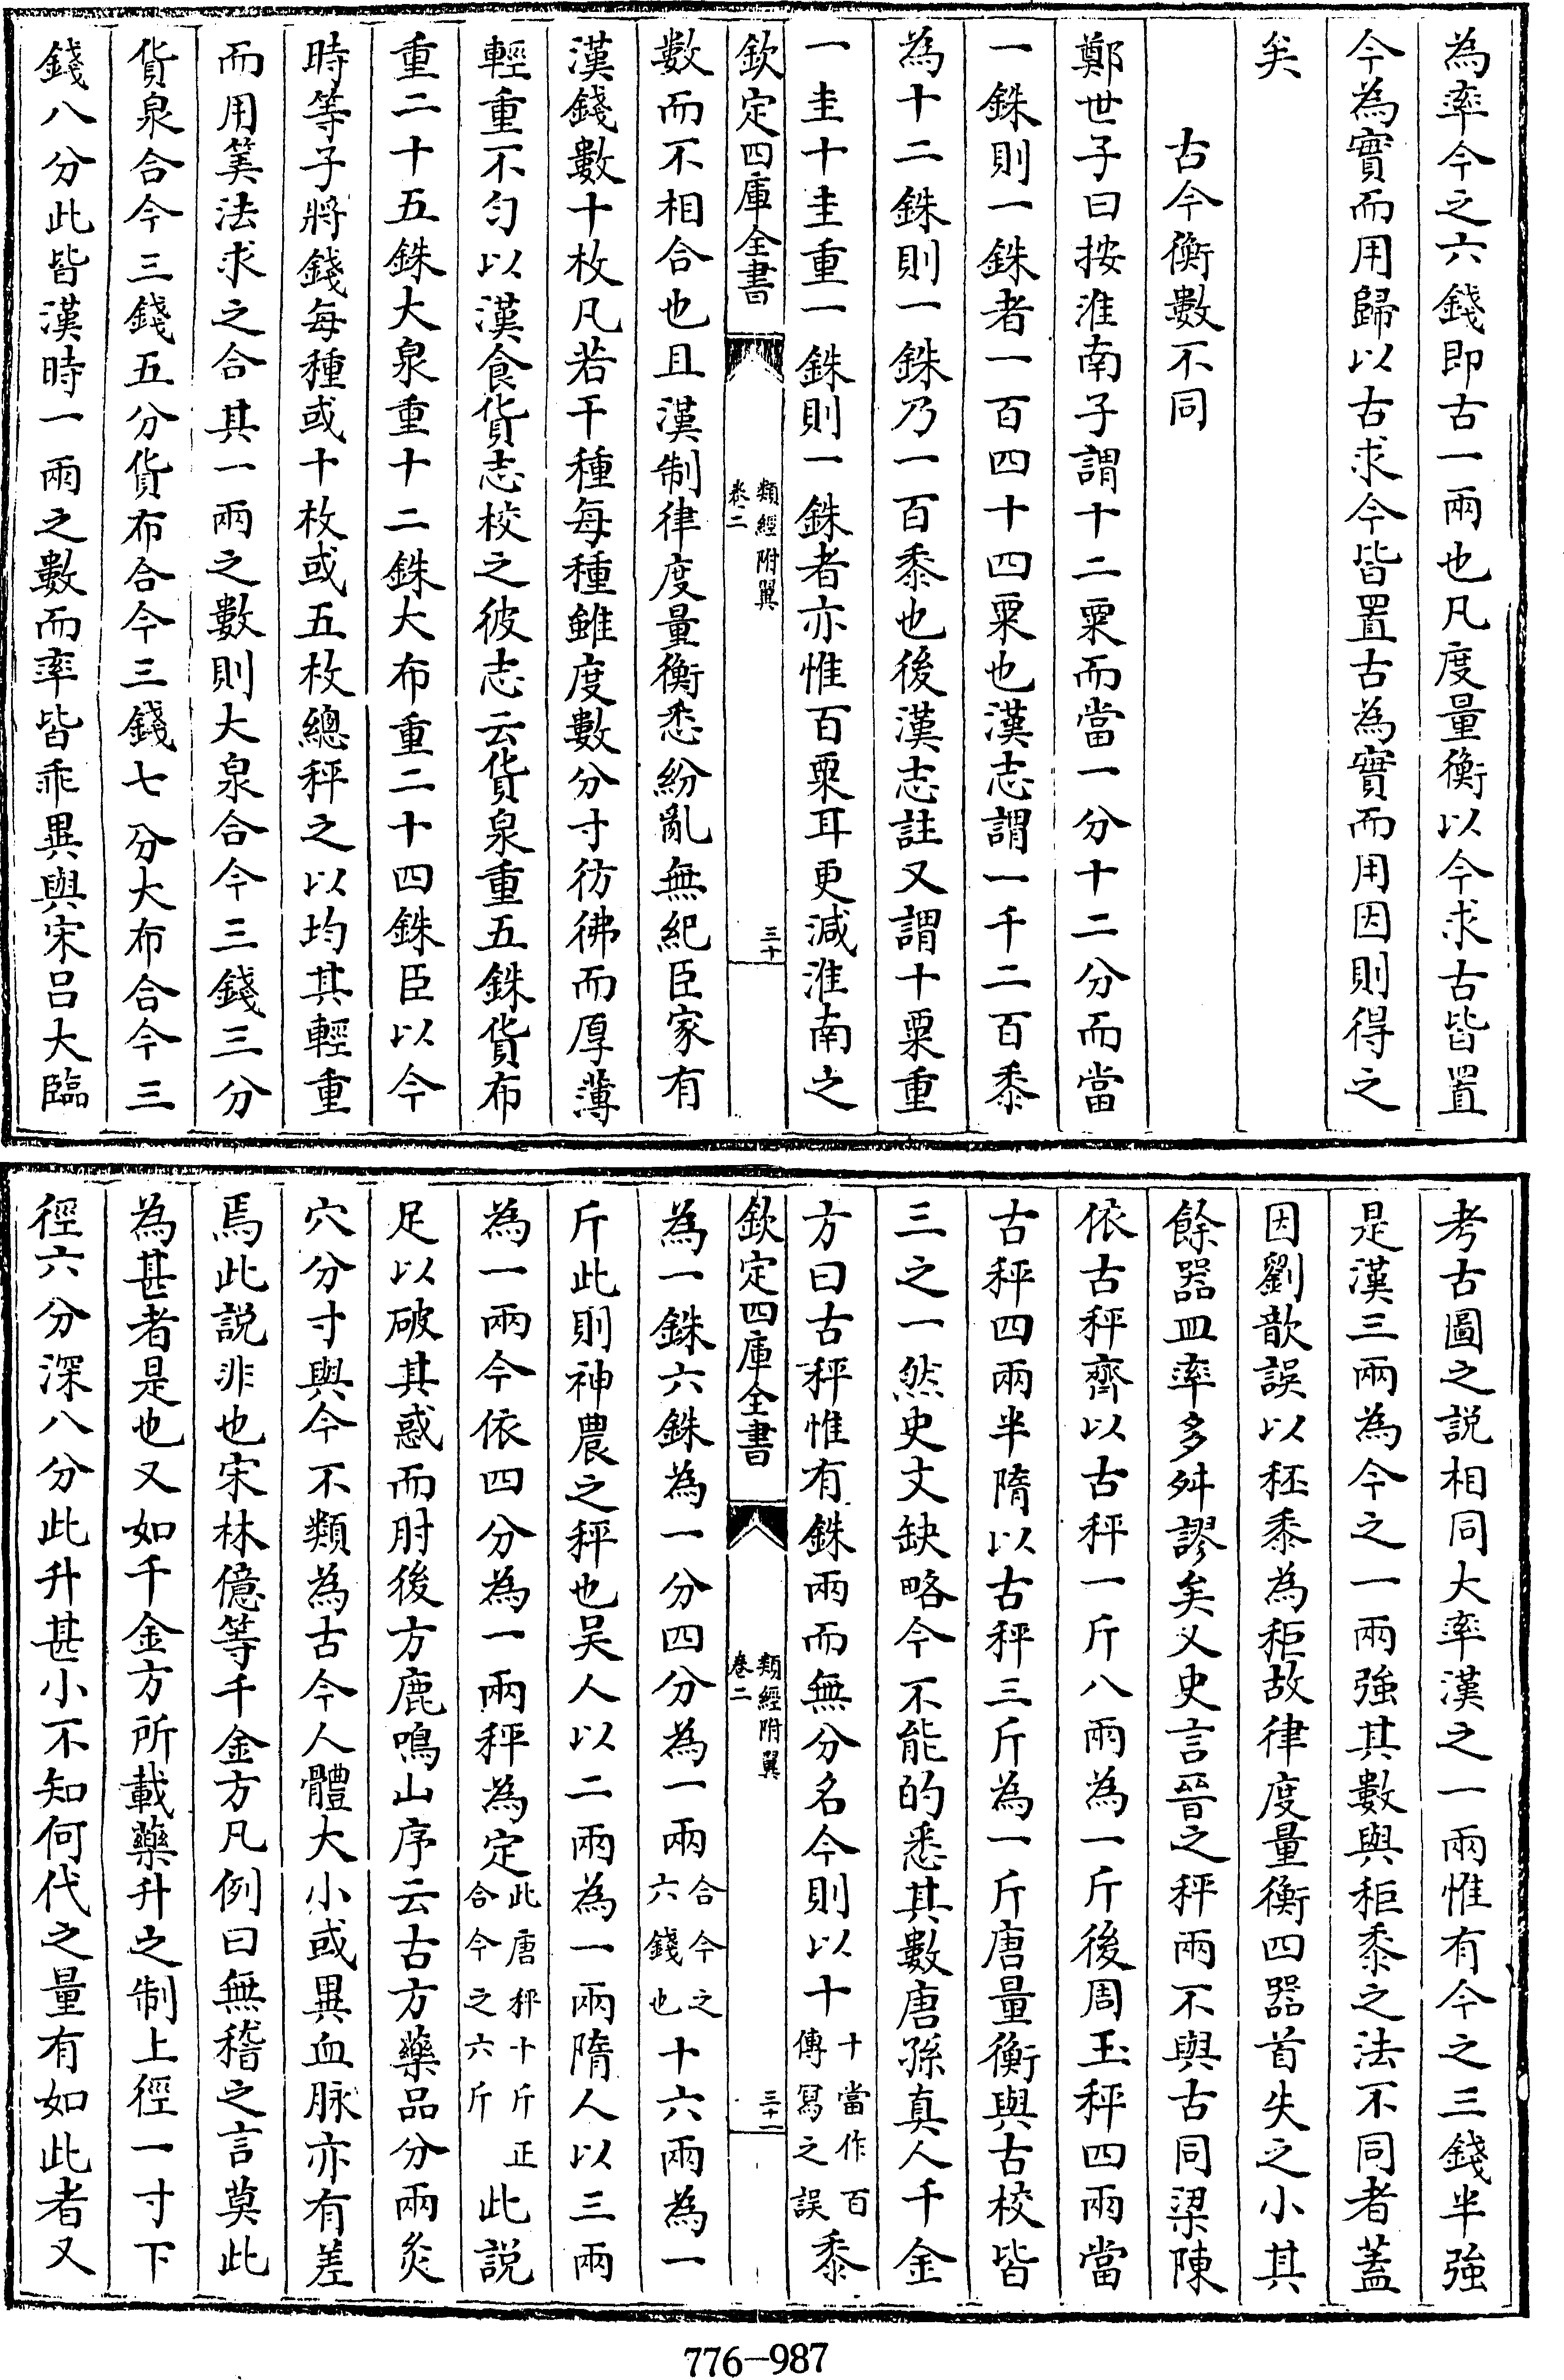 為率今之六錢即古一兩也凡度量衡以今求古皆置
今為實而用歸以古求今皆置古為實而用因則得之
矣
古今衡數不同
鄭世子曰按淮南子謂十二粟而當一分十二分而當
一銖則一銖者一百四十四粟也漢志謂一千二百黍
為十二銖則一銖乃一百黍也後漢志註又謂十粟重
一圭十圭重一銖則一銖者亦惟百粟耳更減淮南之
欽定四庫全書
類經附翼
卷二
三十
數而不相合也且漢制律度量衡悉紛亂無紀臣家有
漢錢數十枚凡若干種每種雖度數分寸彷彿而厚薄
輕重不勻以漢食貨志校之彼志云貨泉重五銖貨布
重二十五銖大泉重十二銖大布重二十四銖臣以今
時等子將錢每種或十枚或五枚總秤之以均其輕重
而用筭法求之合其一兩之數則大泉合今三錢三分
貨泉合今三錢五分貨布合今三錢七分大布合今三
錢八分此皆漢時一兩之數而率皆乖異與宋呂大臨
考古圖之説相同大率漢之一兩惟有今之三錢半強
是漢三兩為今之一兩強其數與秬黍之法不同者蓋
因劉歆誤以秠黍為秬故律度量衡四器首失之小其
餘器皿率多舛謬矣又史言晉之秤兩不與古同梁陳
依古秤齊以古秤一斤八兩為一斤後周玉秤四兩當
古秤四兩半隋以古秤三斤為一斤唐量衡與古校皆
三之一然史文缺略今不能的悉其數唐孫真人千金
方曰古秤惟有銖兩而無分名今則以十十當作百傳寫之誤黍
欽定四庫全書
類經附翼
卷二
三十一
為一銖六銖為一分四分為一兩合今之六錢也十六兩為一
斤此則神農之秤也吳人以二兩為一兩隋人以三兩
為一兩今依四分為一兩秤為定此唐秤十斤正合今之六斤此説
足以破其惑而肘後方鹿鳴山序云古方藥品分兩灸
穴分寸與今不類為古今人體大小或異血脉亦有差
焉此説非也宋林億等千金方凡例曰無稽之言莫此
為甚者是也又如千金方所載藥升之制上徑一寸下
徑六分深八分此升甚小不知何代之量有如此者又
776-987